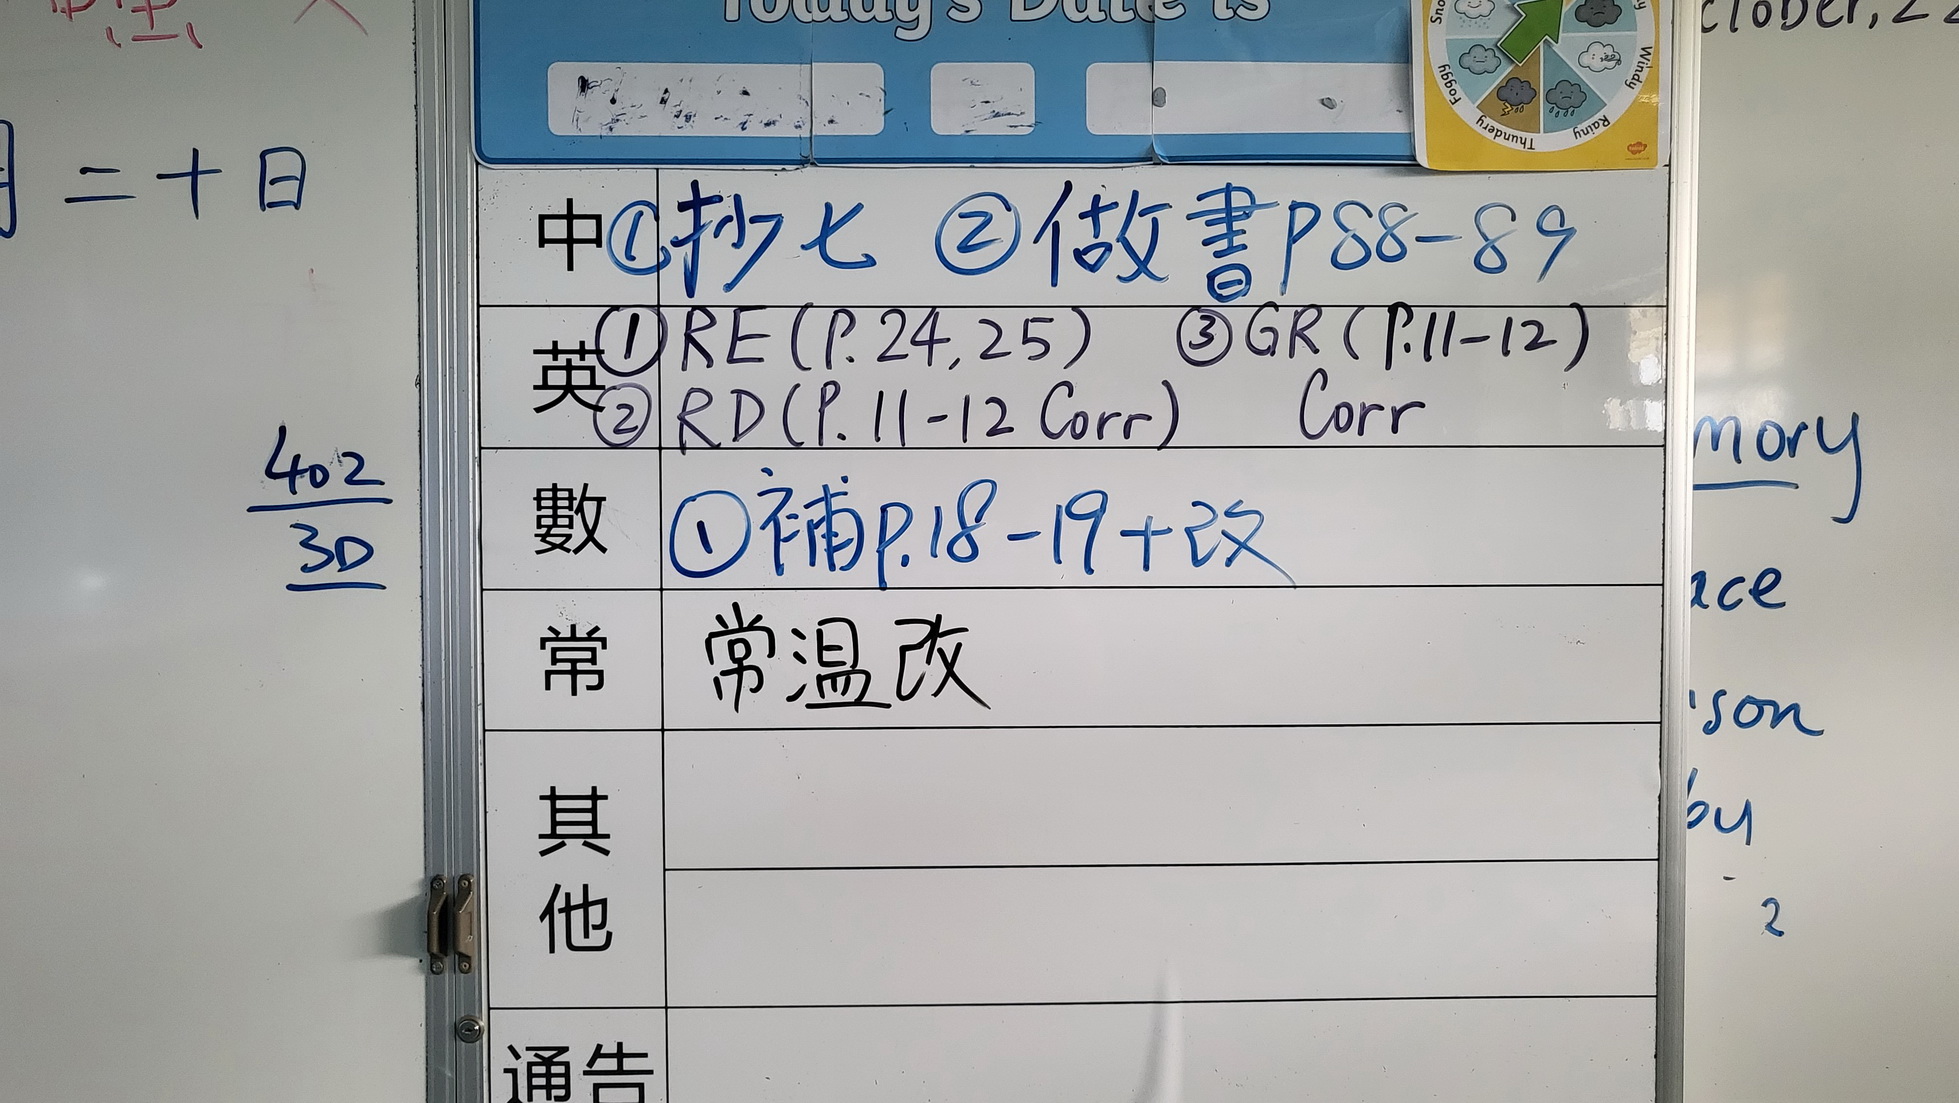 Today's Date is
Snowy
Foggy
Thundery
Rainy
Windy
月二十日
中 ①抄七 ②做書P88-89
英 ①RE(P.24,25) ③GR(P.11-12)
②RD(P.11-12 Corr) Corr
數 ①補P.18-19+改
常 常温改
其他
通告
402
3D
ctober, 22
mory
ace
son
by
2